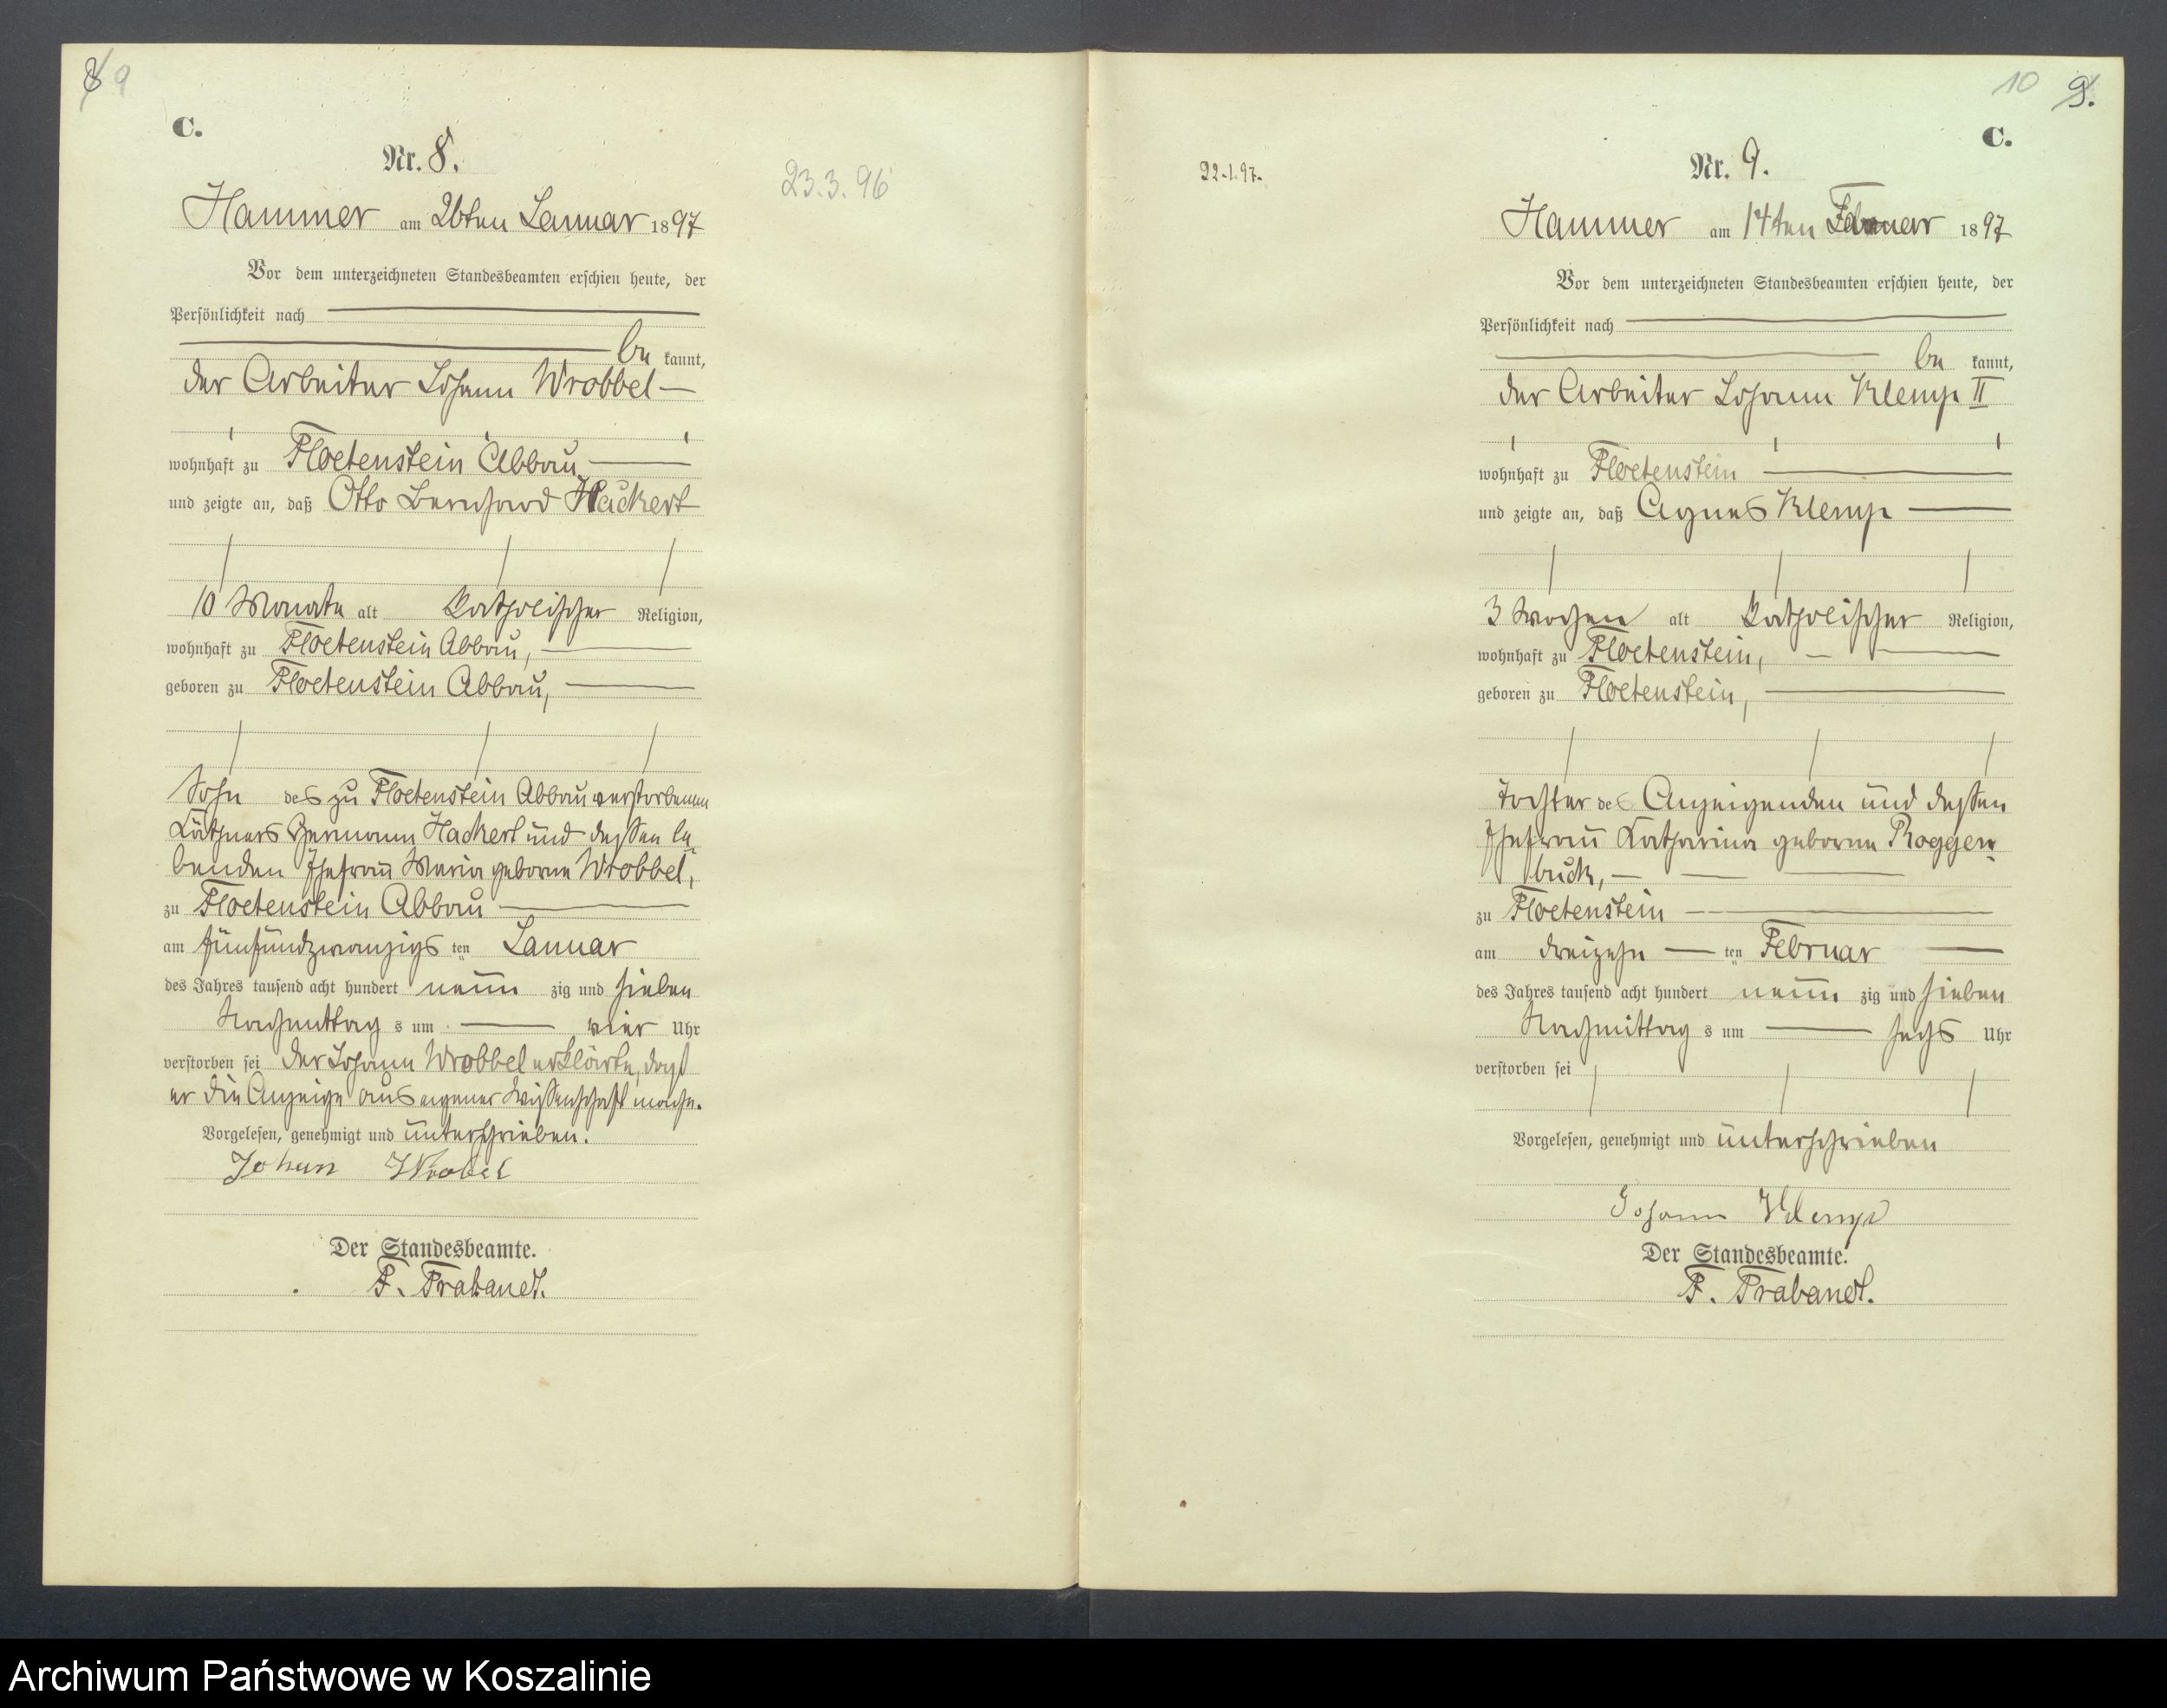 8 9
C.
Nr. 8.
23.3.96
Hammer am 26ten Januar 1897
Vor dem unterzeichneten Standesbeamten erschien heute, der
Persönlichkeit nach
be kannt,
der Arbeiter Johann Wrobbel
wohnhaft zu Floetenstein Abbau
und zeigte an, daß Otto Bernhard Hackert
10 Monate alt Katholischer Religion,
wohnhaft zu Floetenstein Abbau,
geboren zu Floetenstein Abbau,
Sohn des zu Floetenstein Abbau verstorbenen
Käthners Hermann Hackert und dessen le-
benden Ehefrau Maria geborne Wrobbel,
zu Floetenstein Abbau
am fünfundzwanzigs ten Januar
des Jahres tausend acht hundert neun zig und sieben
Nachmittag s um vier Uhr
verstorben sei der Johann Wrobbel erklärte, daß
er die Anzeige aus eigener Wissenschaft mache.
Vorgelesen, genehmigt und unterschrieben.
Johann Wrobel
Der Standesbeamte.
F. Trabandt.
10 9.
C.
22.1.97.
Nr. 9.
Hammer am 14ten Februar 1897
Vor dem unterzeichneten Standesbeamten erschien heute, der
Persönlichkeit nach
be kannt,
der Arbeiter Johann Klemp II
wohnhaft zu Floetenstein
und zeigte an, daß Agnes Klemp
3 Wochen alt Katholischer Religion,
wohnhaft zu Floetenstein,
geboren zu Floetenstein,
Tochter des Anzeigenden und dessen
Ehefrau Katharina geborne Roggen-
buck,
zu Floetenstein
am dreizehn ten Februar
des Jahres tausend acht hundert neun zig und sieben
Nachmittag s um sechs Uhr
verstorben sei
Vorgelesen, genehmigt und unterschrieben
Johann Klemp
Der Standesbeamte.
F. Trabandt.
Archiwum Państwowe w Koszalinie